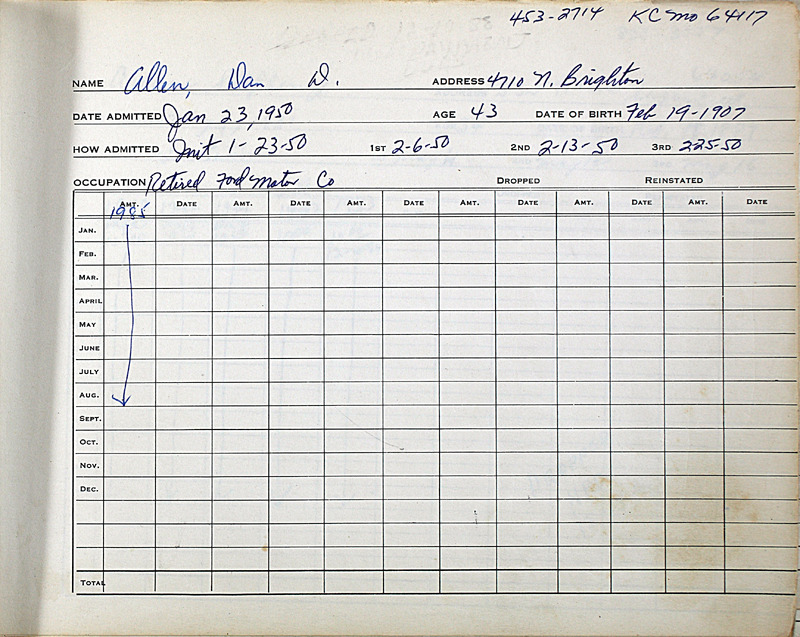 453-2714 KC Mo 64117
NAME Allen, Dan D. ADDRESS 4710 N. Brighton
DATE ADMITTED Jan 23, 1950 AGE 43 DATE OF BIRTH Feb 19-1907
HOW ADMITTED Init 1-23-50 1ST 2-6-50 2ND 2-13-50 3RD 2-25-50
OCCUPATION Retired Ford Motor Co DROPPED REINSTATED
AMT. DATE AMT. DATE AMT. DATE AMT. DATE AMT. DATE AMT. DATE
1985
JAN.
FEB.
MAR.
APRIL
MAY
JUNE
JULY
AUG.
SEPT.
OCT.
NOV.
DEC.
TOTAL